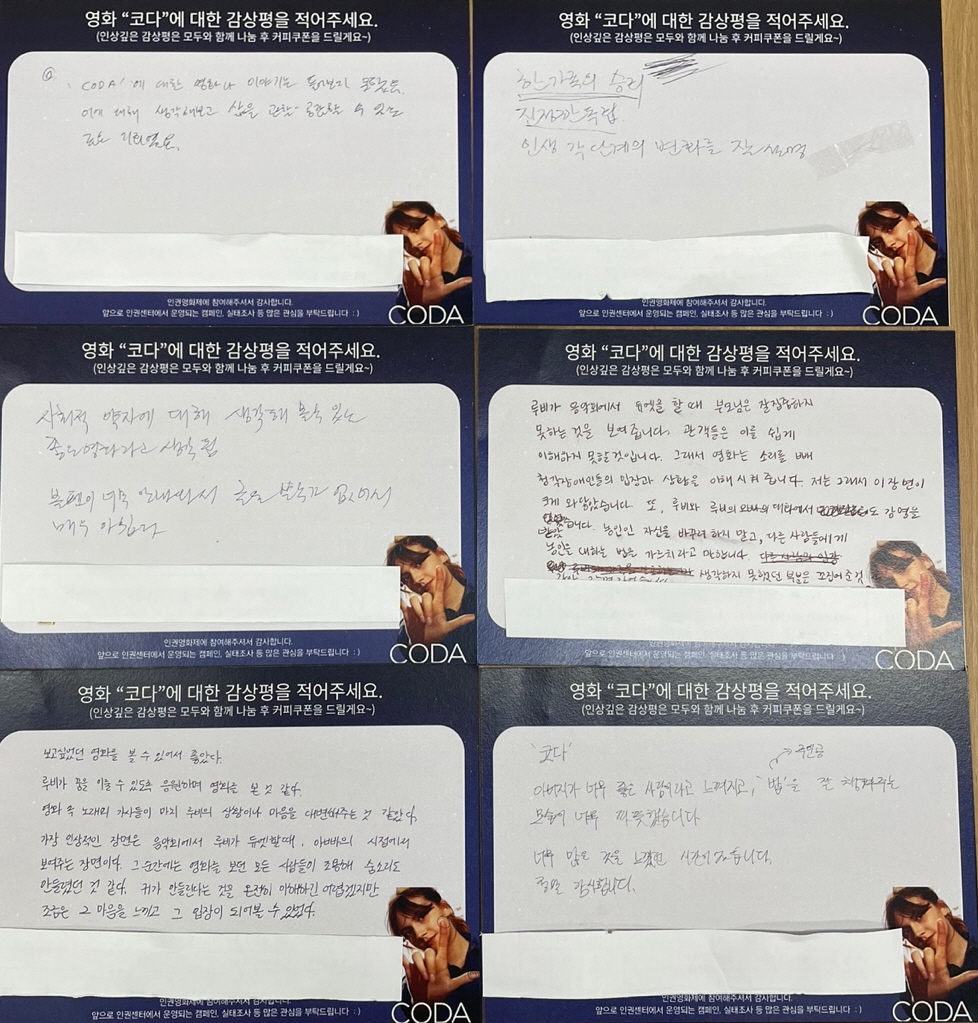 영화 “코다”에 대한 감상평을 적어주세요.
(인상깊은 감상평은 모두와 함께 나눔 후 커피쿠폰을 드릴게요~)
CODA'에 대한 영화나 이야기는
이에 대해 생각해보고 삶을 관찰·공감할 수 있는
인권영화제에 참여해주셔서 감사합니다.
앞으로 인권센터에서 운영되는 캠페인, 실태조사 등 많은 관심을 부탁드립니다 : )
CODA
영화 “코다”에 대한 감상평을 적어주세요.
(인상깊은 감상평은 모두와 함께 나눔 후 커피쿠폰을 드릴게요~)
한 가족의 승리
진정한 독립
인생 각 단계의 변화를 잘 설명
인권영화제에 참여해주셔서 감사합니다.
앞으로 인권센터에서 운영되는 캠페인, 실태조사 등 많은 관심을 부탁드립니다 : )
CODA
영화 “코다”에 대한 감상평을 적어주세요.
(인상깊은 감상평은 모두와 함께 나눔 후 커피쿠폰을 드릴게요~)
사회적 약자에 대해 생각해 볼수 있는
좋은영화라고 생각 됨
너무 없어서
매우 아쉽다
인권영화제에 참여해주셔서 감사합니다.
앞으로 인권센터에서 운영되는 캠페인, 실태조사 등 많은 관심을 부탁드립니다 : )
CODA
영화 “코다”에 대한 감상평을 적어주세요.
(인상깊은 감상평은 모두와 함께 나눔 후 커피쿠폰을 드릴게요~)
루비가 음악회에서 듀엣을 할 때 부모님은 잘 집중하지
못하는 것을 보여 줍니다. 관객들은 이를 쉽게
이해하지 못할 것입니다. 그래서 영화는 소리를 빼
청각장애인들의 입장과 상황을 이해 시켜 줍니다. 저는 그래서 이 장면이
크게 와닿았습니다. 또, 루비와 루비의 오빠의 대화에서도 감명을
받았습니다. 농인인 자신을 바꾸려 하지 말고, 다른 사람들에게
농인을 대하는 법을 가르치라고 말합니다.
생각하지 못했던 부분을 꼬집어 준 것
인권영화제에 참여해주셔서 감사합니다.
앞으로 인권센터에서 운영되는 캠페인, 실태조사 등 많은 관심을 부탁드립니다 : )
CODA
영화 “코다”에 대한 감상평을 적어주세요.
(인상깊은 감상평은 모두와 함께 나눔 후 커피쿠폰을 드릴게요~)
보고싶었던 영화를 볼 수 있어서 좋았다.
루비가 꿈을 이룰 수 있도록 응원하며 영화를 본 것 같다.
영화 속 노래의 가사들이 마치 루비의 상황이나 마음을 대변해주는 것 같았다.
가장 인상적인 장면은 음악회에서 루비가 듀엣할때, 아빠의 시점에서
보여주는 장면이다. 그 순간에는 영화를 보던 모든 사람들이 조용해 숨소리도
안들렸던 것 같다. 귀가 안들린다는 것을 온전히 이해하긴 어렵겠지만
조금은 그 마음을 느끼고 그 입장이 되어볼 수 있었다.
인권영화제에 참여해주셔서 감사합니다.
앞으로 인권센터에서 운영되는 캠페인, 실태조사 등 많은 관심을 부탁드립니다 : )
CODA
영화 “코다”에 대한 감상평을 적어주세요.
(인상깊은 감상평은 모두와 함께 나눔 후 커피쿠폰을 드릴게요~)
'코다'
주인공
아버지가 너무 좋은 사람이라고 느껴지고, '밥'을 잘 챙겨주는
모습에 너무 따뜻했습니다
너무 많은 것을 느꼈던 시간이었습니다.
정말 감사합니다.
인권영화제에 참여해주셔서 감사합니다.
앞으로 인권센터에서 운영되는 캠페인, 실태조사 등 많은 관심을 부탁드립니다 : )
CODA